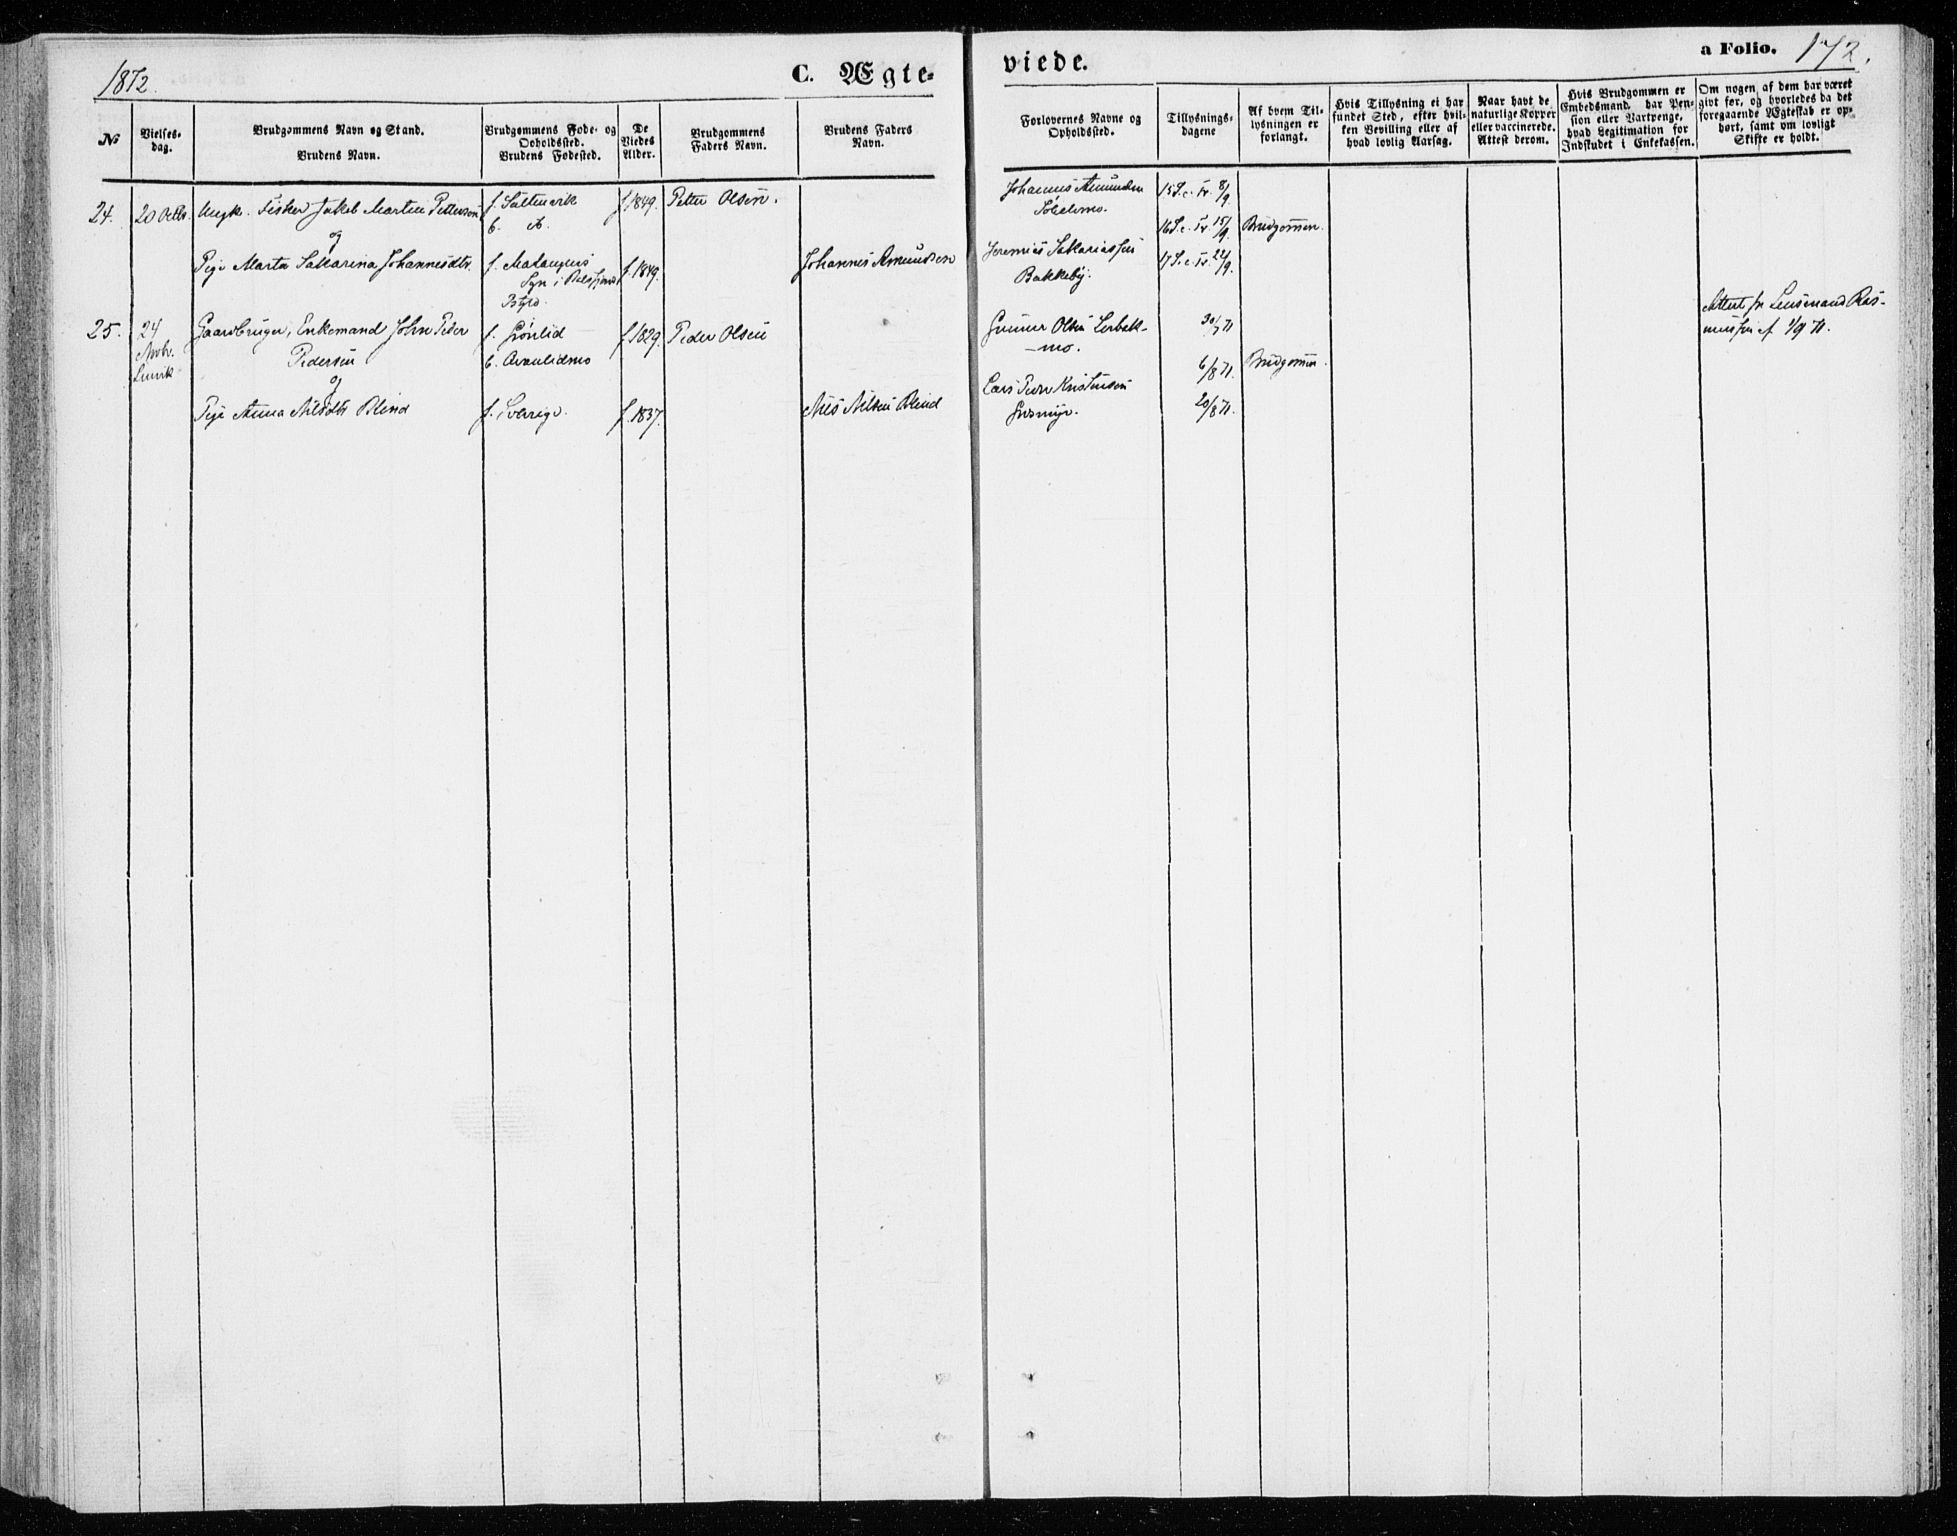 1872.
C. Ægte-
viede.
a Folio. 172.
No
Vielses-
dag.
Brudgommens Navn og Stand.
Brudens Navn.
Brudgommens Føde- og
Opholdssted.
Brudens Fødested.
De
Viedes
Alder.
Brudgommens
Faders Navn.
Brudens Faders
Navn.
Forlovernes Navne og
Opholdssted.
Tillysnings-
dagene
Af hvem Til-
lysningen er
forlangt.
Hvis Tillysning ei har
fundet Sted, efter hvil-
ken Bevilling eller af
hvad lovlig Aarsag.
Naar havt de
naturlige Kopper
eller vaccinerede.
Attest derom.
Hvis Brudgommen er
Embedsmand, har Pen-
sion eller Vartpenge,
hvad Legitimation for
Indskudet i Enkekassen.
Om nogen af dem har været
givt før, og hvorledes da det
foregaaende Ægteskab er op-
hørt, samt om lovligt
Skifte er holdt.
24. 20 Octbr. Ungk. Fisker Jakob Martin Pettersen f. Sultenvik f. 1849. Petter Olsen. Johannes Amundsen 15 S. e. Tr. 8/9.
b. do.
16 S. e. Tr. 15/9. Brudgommen.
og
Pige Marta Sakarina Johannesdtr. f. Malangens f. 1849. Johannes Amundsen Jeremias Sakariassen 17 S. e. Tr. 22/9.
i Balsfjords
Bakkeby.
Pstgld.
25. 24 Gaardbruger, Enkemand John Peder f. Grønlid f. 1829. Peder Olsen Gunnar Olsen Lerbek- 30/7 71 Attest fra Lensmand Ras-
Novbr. Pedersen b. -mo. mussen af 1/9 71.
Lenvik 6/8 71. Brudgommen.
og
Lars Peder Kristensen
Pige Anna Nilsdtr Blind f. Sverige. f. 1837. Nils Nilsen Blind 20/8 71.